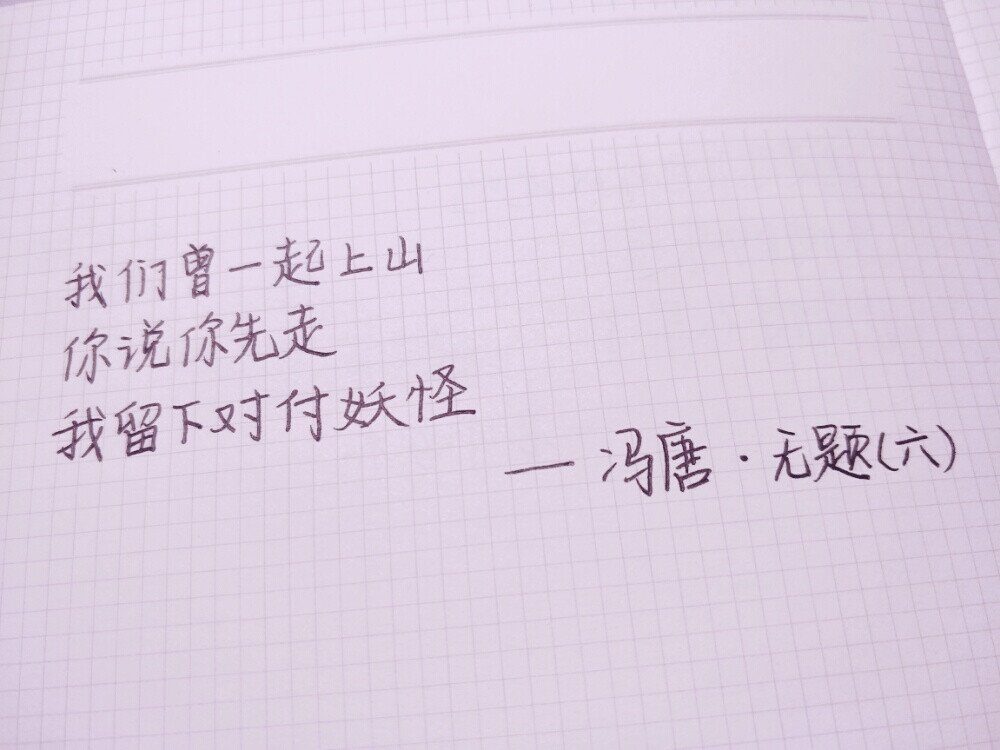 我们曾一起上山
你说你先走
我留下对付妖怪
— 冯唐·无题(六)